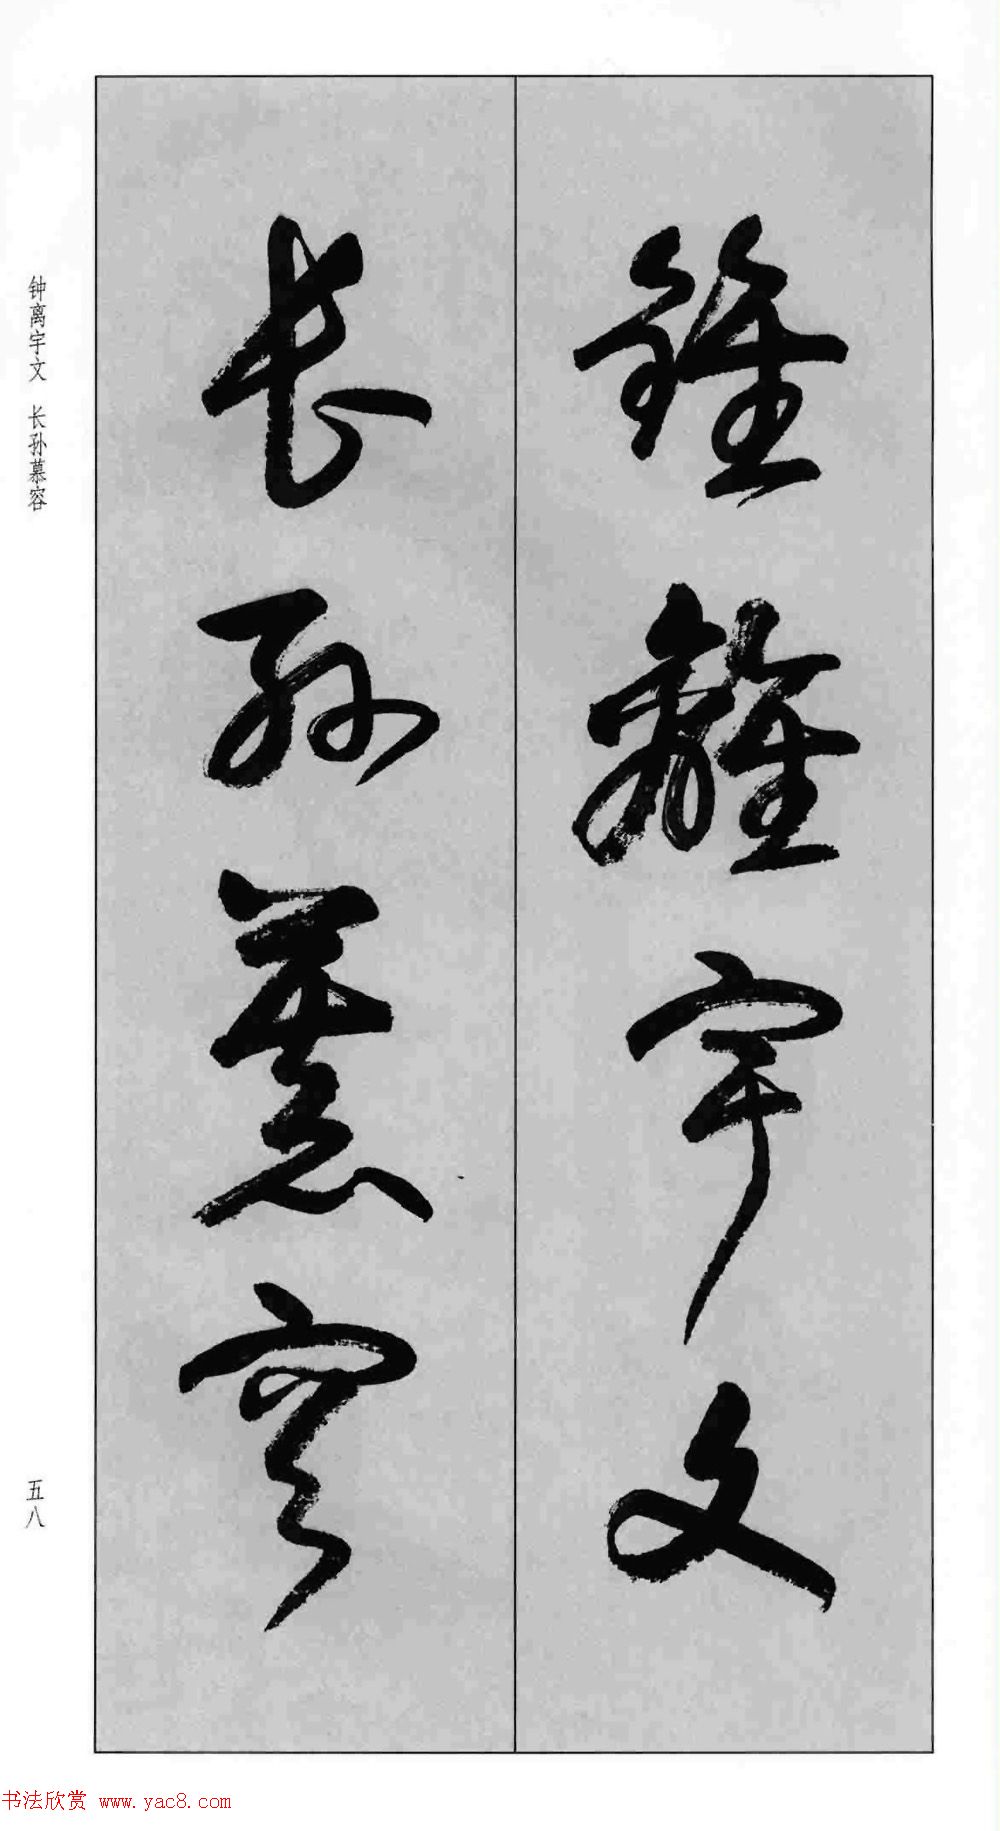 鍾離宇文
长孙慕容
钟离宇文 长孙慕容
五八
书法欣赏 www.yac8.com